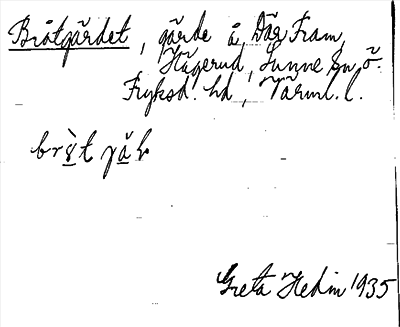 Bråtgärdet, gärde å Där Fram,
Hägerud, Sunne sn ö.
Fryksd. hd, Värml. l.
Greta Hedin 1935